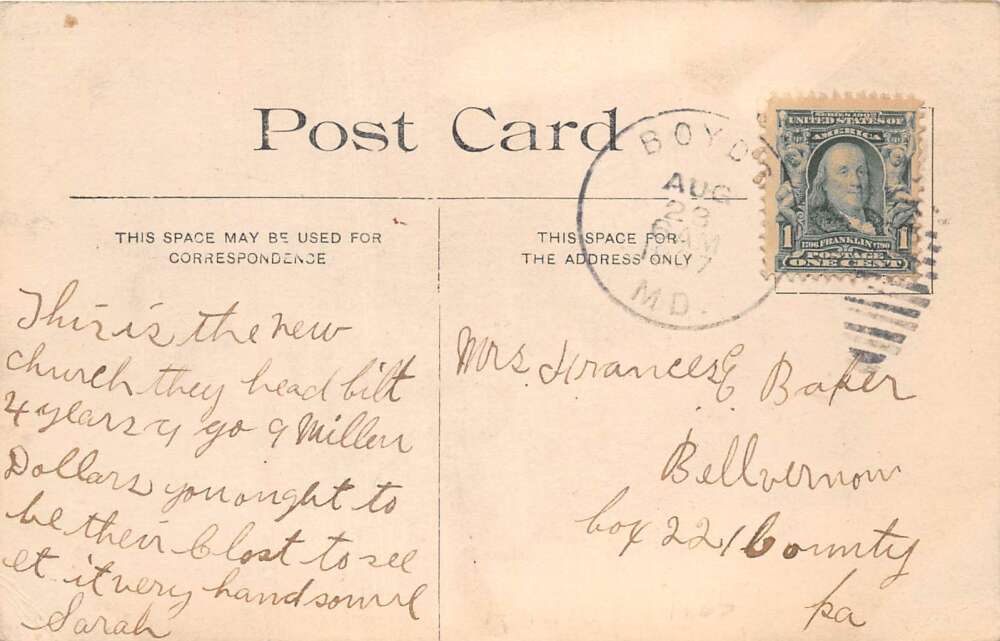 Post Card
BOYDS
AUG
28
AM
7
MD.
SERIES 1902
UNITED STATES OF
AMERICA
1 FRANKLIN 1
POSTAGE
ONE CENT
THIS SPACE MAY BE USED FOR
CORRESPONDENCE
THIS SPACE FOR
THE ADDRESS ONLY
This is the new
church they head bilt
4 years a go 9 Millen
Dollars you ought to
be their Clost to see
et it very handsome
Sarah
Mrs Frances E Baker
Bellvernon
box 221 County
pa